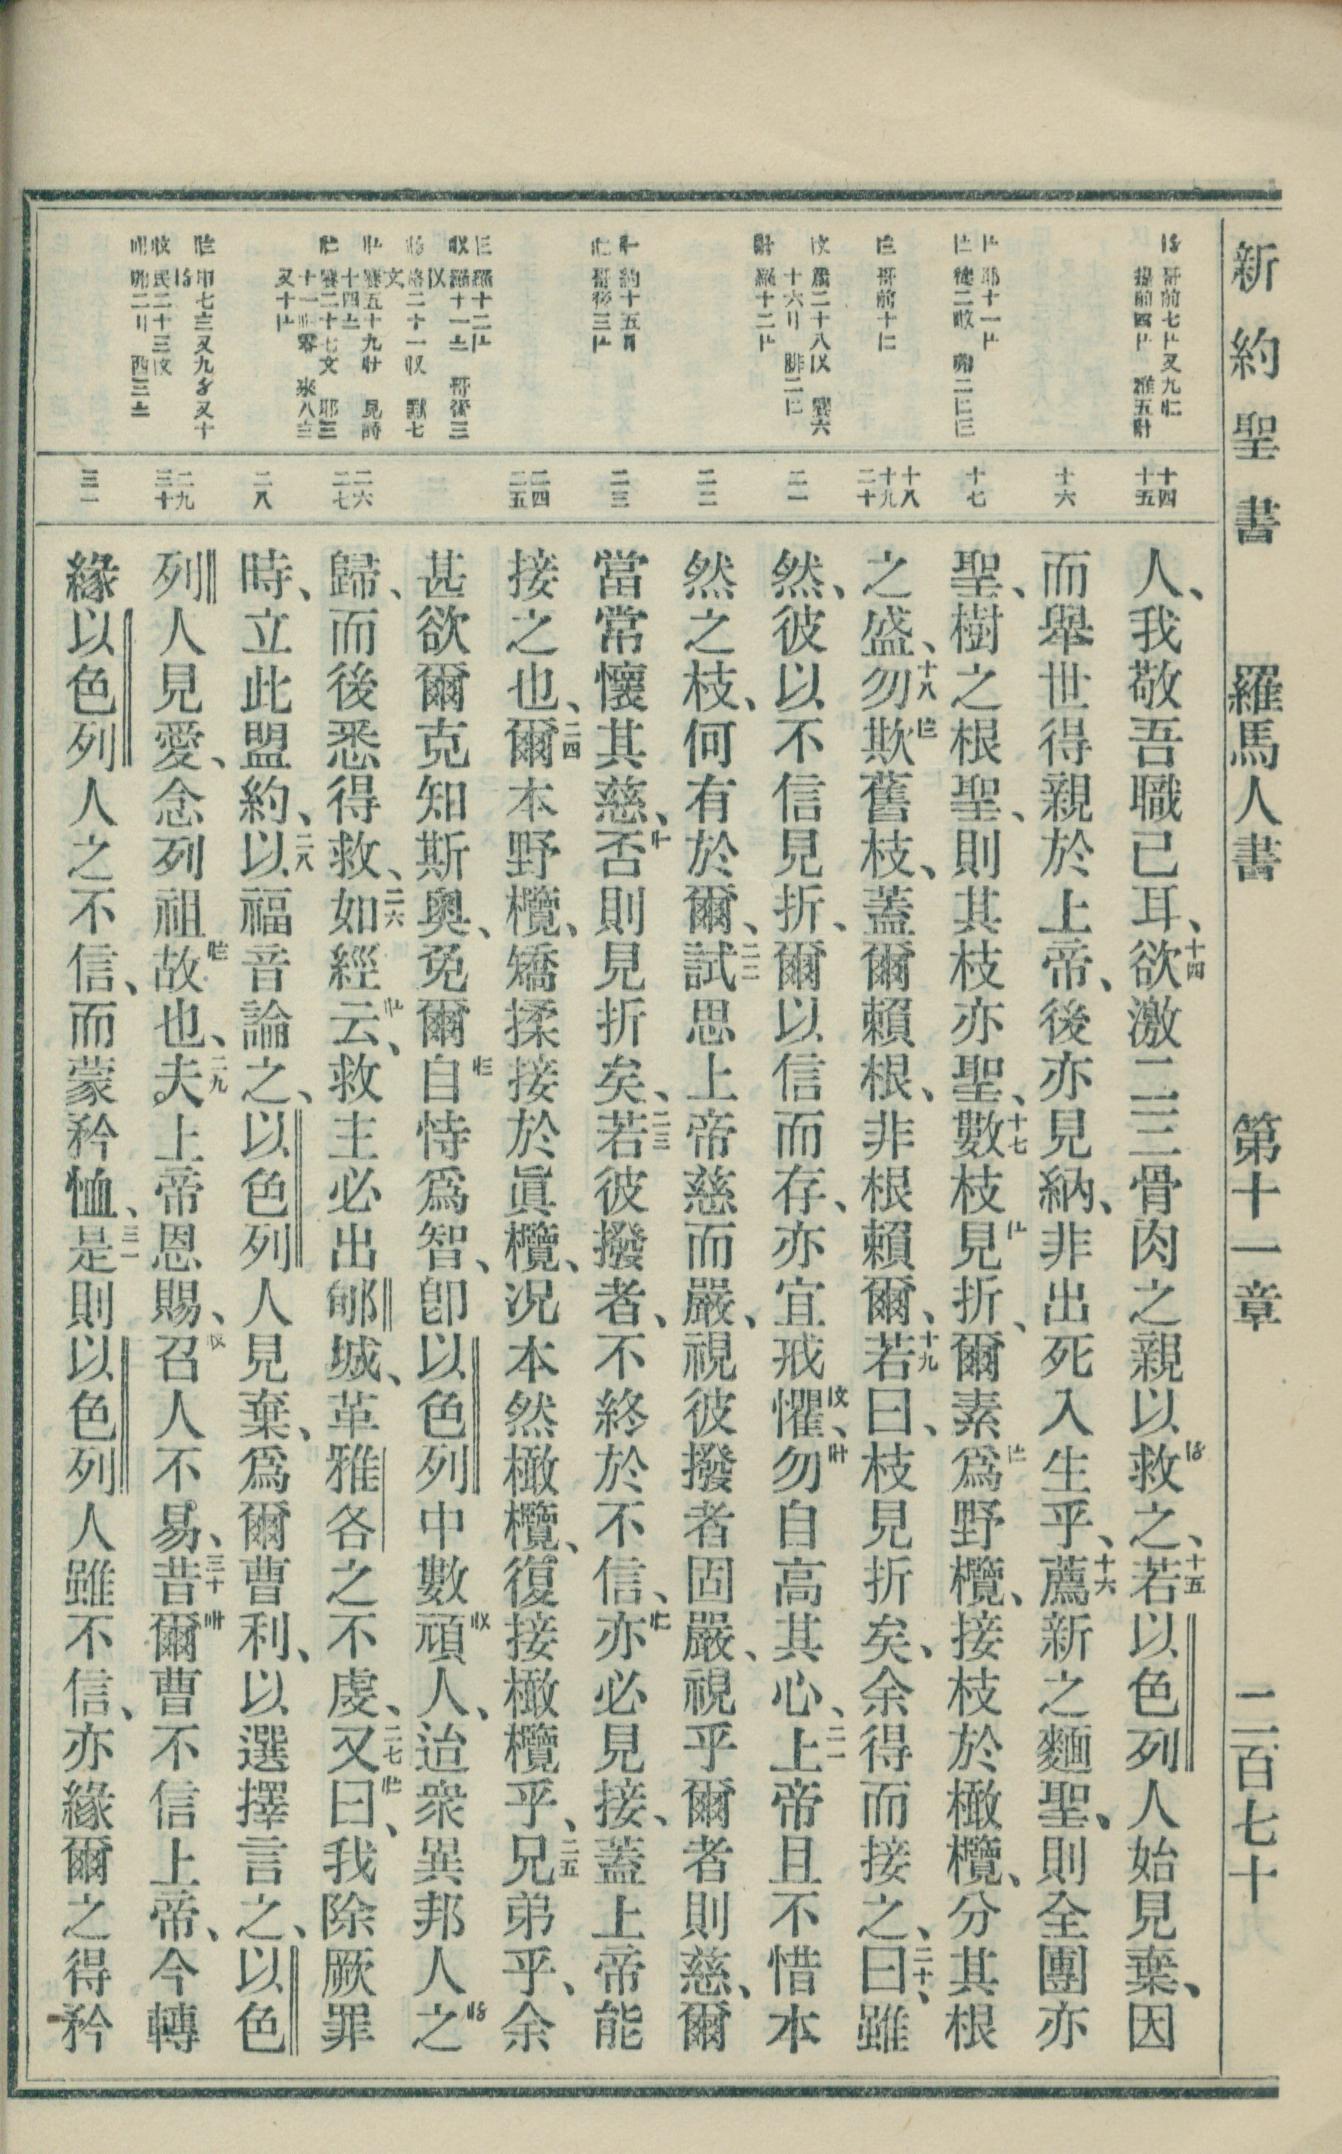 新約聖書 羅馬人書 第十一章 二百七十
十四
十五
十六
十七
十八
十九
二十
二一
二二
二三
二四
二五
二六
二七
二八
二九
三十
三一
人、我敬吾職已耳、十四欲激二三骨肉之親以救之、十五若以色列人始見棄、因
而舉世得親於上帝、後亦見納、非出死入生乎、十六薦新之麵聖、則全團亦
聖、樹之根聖、則其枝亦聖、十七數枝見折、爾素爲野欖、接枝於橄欖、分其根
之盛、十八勿欺舊枝、蓋爾賴根、非根賴爾、十九若曰、枝見折矣、余得而接之、二十曰、雖
然、彼以不信見折、爾以信而存、亦宜戒懼、勿自高其心、二一上帝且不惜本
然之枝、何有於爾、二二試思上帝慈而嚴、視彼撥者固嚴、視乎爾者則慈、爾
當常懷其慈、否則見折矣、二三若彼撥者、不終於不信、亦必見接、蓋上帝能
接之也、二四爾本野欖、矯揉接於眞欖、況本然橄欖、復接橄欖乎、二五兄弟乎、余
甚欲爾克知斯奧、免爾自恃爲智、卽以色列中數頑人、迨衆異邦人之
歸、而後悉得救、二六如經云、救主必出郇城、革雅各之不虔、二七又曰、我除厥罪
時、立此盟約、二八以福音論之、以色列人見棄、爲爾曹利、以選擇言之、以色
列人見愛、念列祖故也、二九夫上帝恩賜、召人不易、三十昔爾曹不信上帝、今轉
緣以色列人之不信、而蒙矜恤、三一是則以色列人雖不信、亦緣爾之得矜